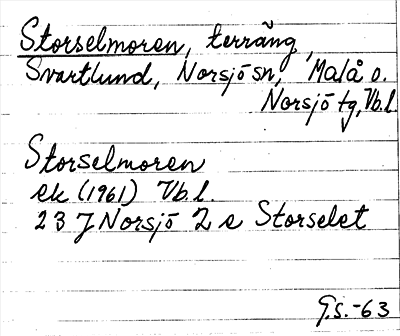 Storselmoren, terräng,
Svartlund, Norsjö sn, Malå o.
Norsjö tg, Vb.l.
Storselmoren
ek (1961) Vb.l.
23 J Norsjö 2 e Storselet
G.S.-63